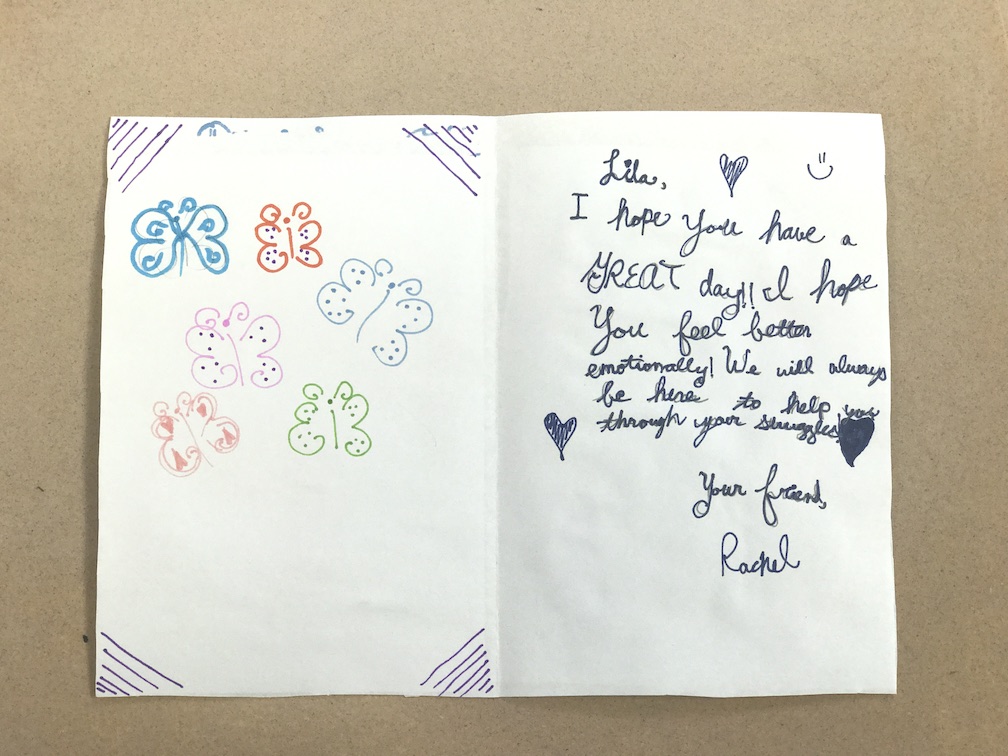 Lila,
I hope you have a
GREAT day!! I hope
You feel better
emotionally! We will always
be here to help you
through your struggles!
Your friend,
Rachel